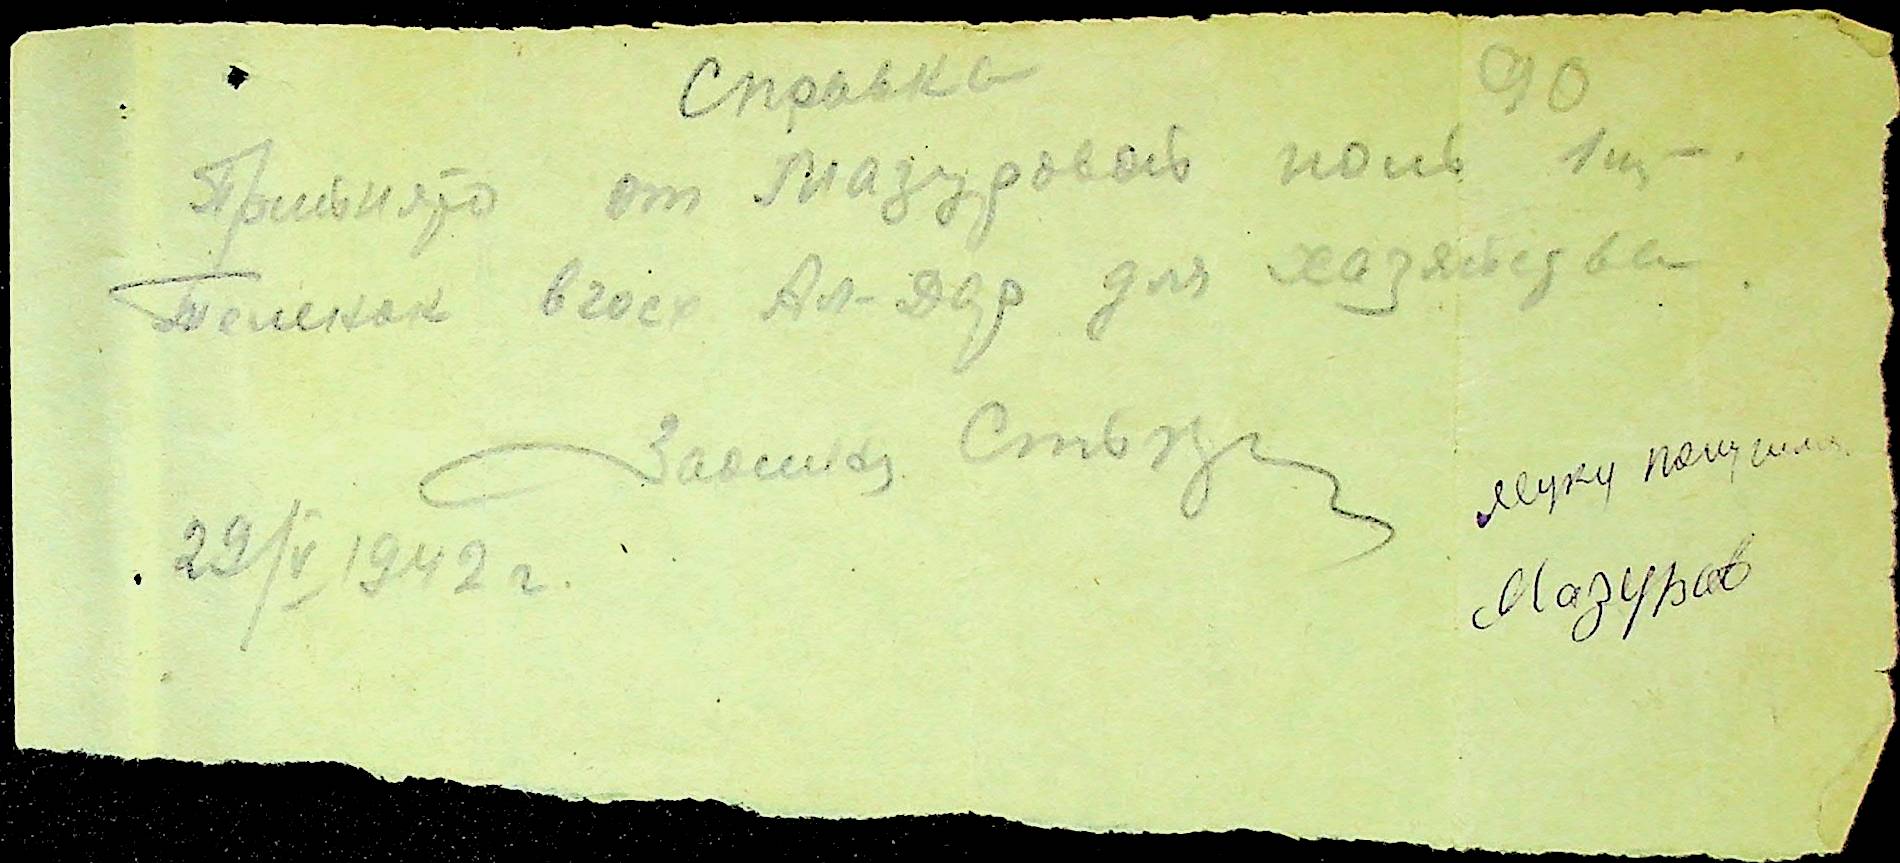 Справка 90
Принято от Мазуровой 1 щ-.
теленок вгосх Ал-Дар для хазяйства.
29/V 1942 г.
муку получила
Мазуров